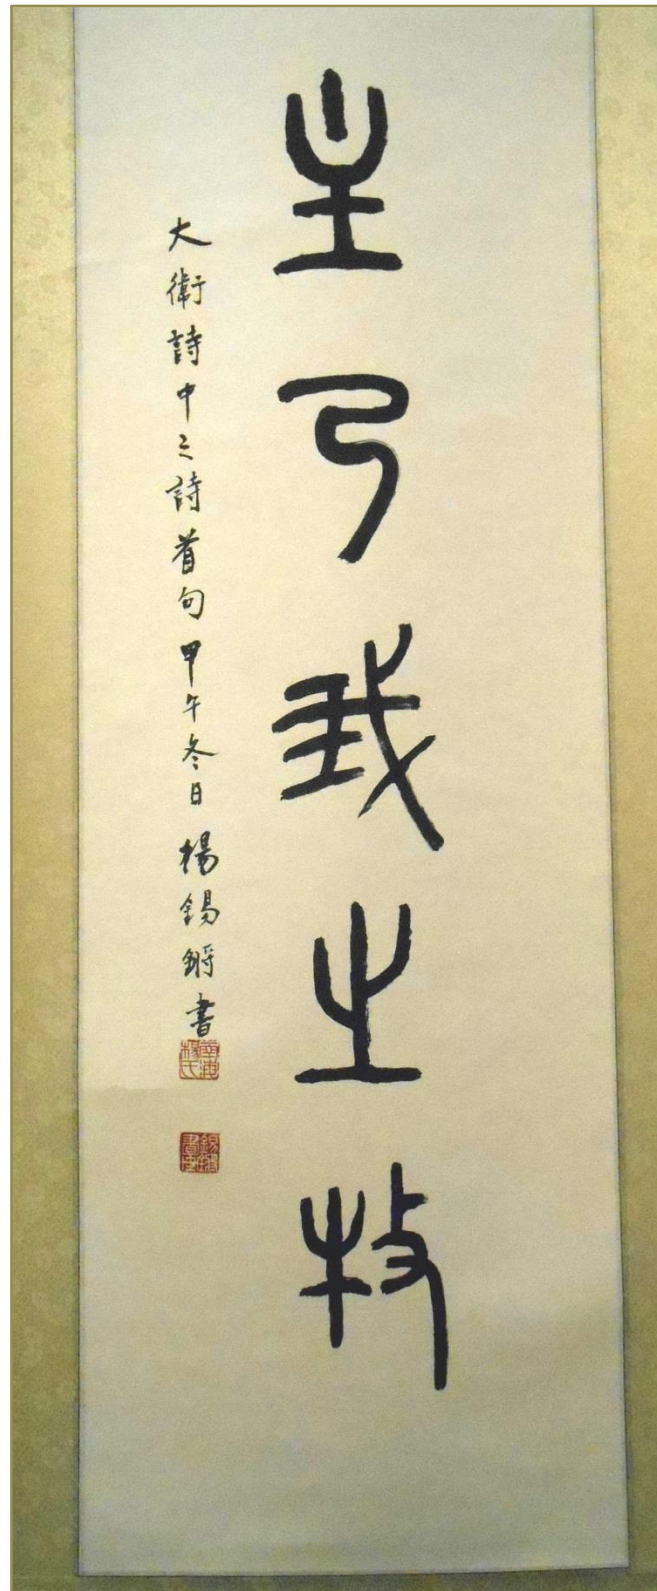 主乃我之牧
大衛詩中之詩首句甲午冬日楊錫鏘書